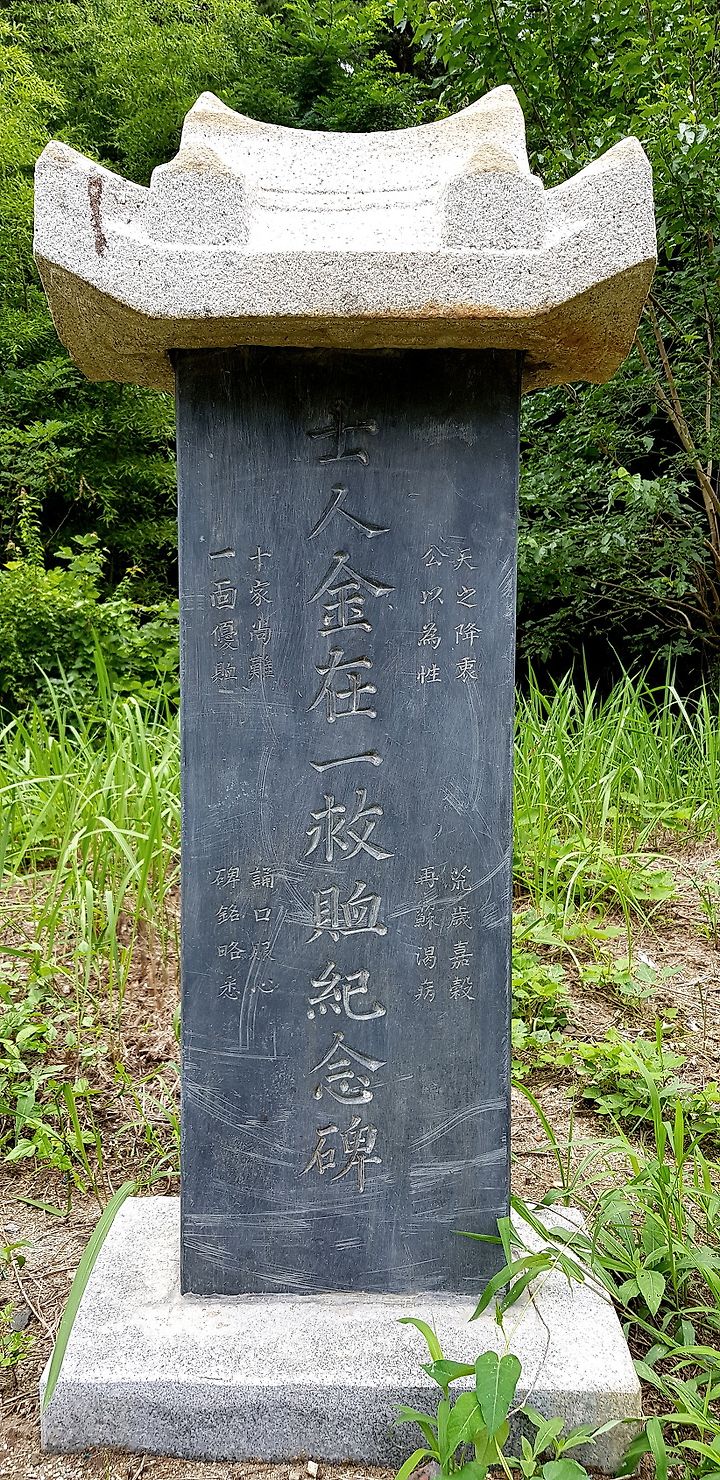 天之降衷 荒歲嘉穀
公以為性 再蘇渴病
士人金在一救賉紀念碑
十家尚難 誦口心
一面優賉 碑銘略悉